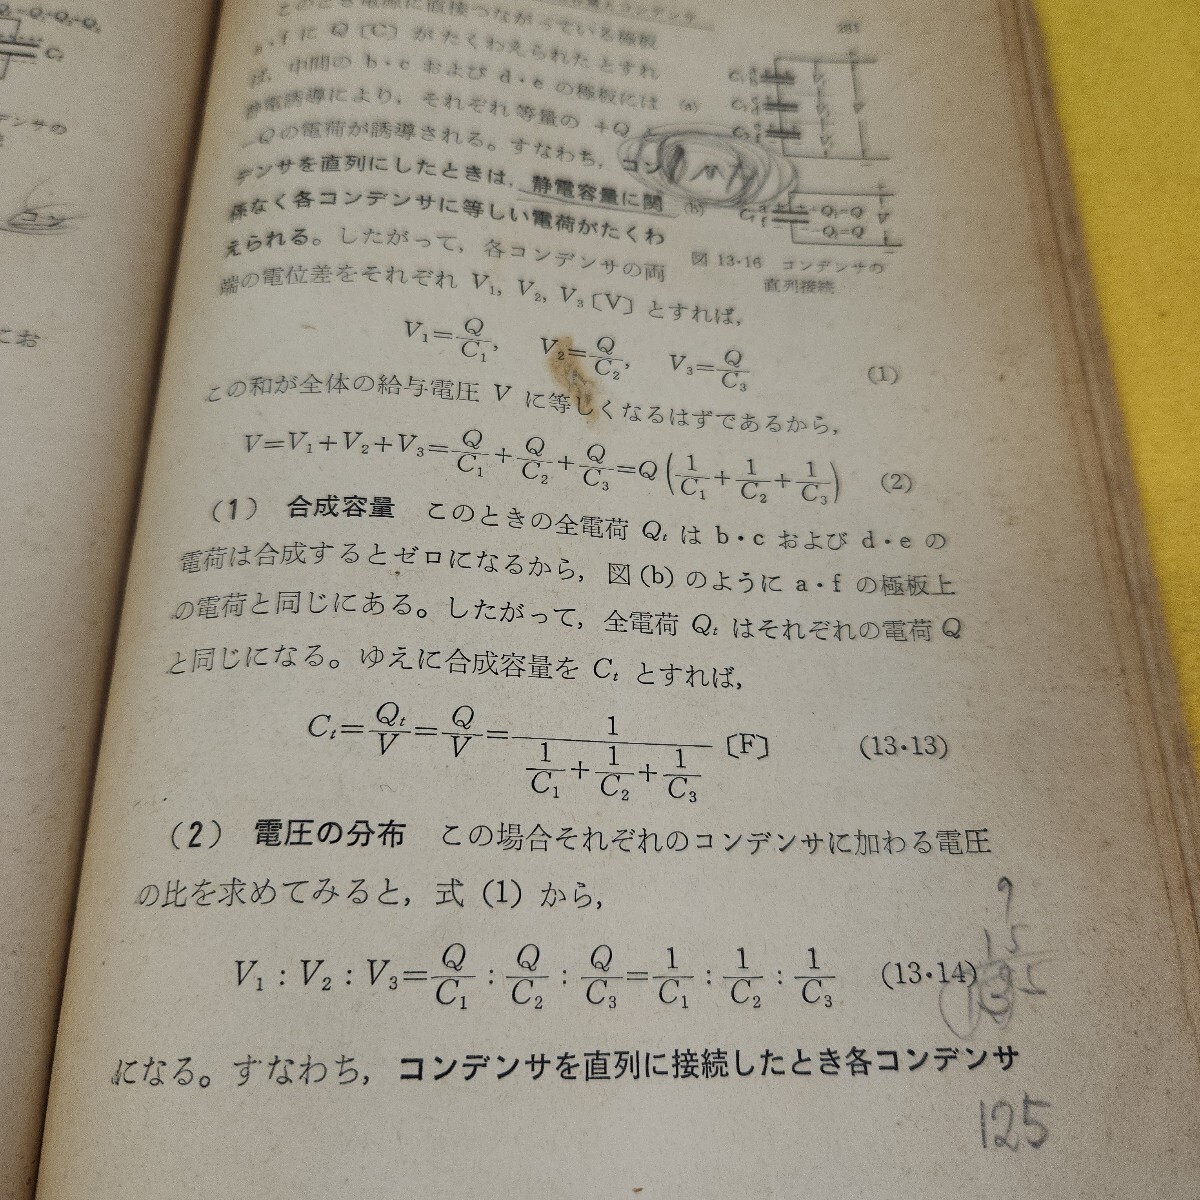 このとき電源に直接つながっている極板
a・f に Q〔C〕がたくわえられたとすれ
ば，中間の b・c および d・e の極板には
静電誘導により，それぞれ等量の +Q と
−Qの電荷が誘導される。すなわち，コン
デンサを直列にしたときは，静電容量に関
係なく各コンデンサに等しい電荷がたくわ
えられる。したがって，各コンデンサの両
端の電位差をそれぞれ V₁, V₂, V₃〔V〕とすれば，
(a)
(b)
図 13・16 コンデンサの
直列接続
V₁=Q/C₁, V₂=Q/C₂, V₃=Q/C₃ (1)
この和が全体の給与電圧 V に等しくなるはずであるから，
V=V₁+V₂+V₃=Q/C₁+Q/C₂+Q/C₃=Q(1/C₁+1/C₂+1/C₃) (2)
(1) 合成容量 このときの全電荷 Qₜ は b・c および d・e の
電荷は合成するとゼロになるから，図(b)のように a・f の極板上
の電荷と同じにある。したがって，全電荷 Qₜ はそれぞれの電荷 Q
と同じになる。ゆえに合成容量を Cₜ とすれば，
Cₜ=Qₜ/V=Q/V=1/(1/C₁+1/C₂+1/C₃)〔F〕 (13・13)
(2) 電圧の分布 この場合それぞれのコンデンサに加わる電圧
の比を求めてみると，式(1)から，
V₁:V₂:V₃=Q/C₁:Q/C₂:Q/C₃=1/C₁:1/C₂:1/C₃ (13・14)
になる。すなわち，コンデンサを直列に接続したとき各コンデンサ
9
15
125